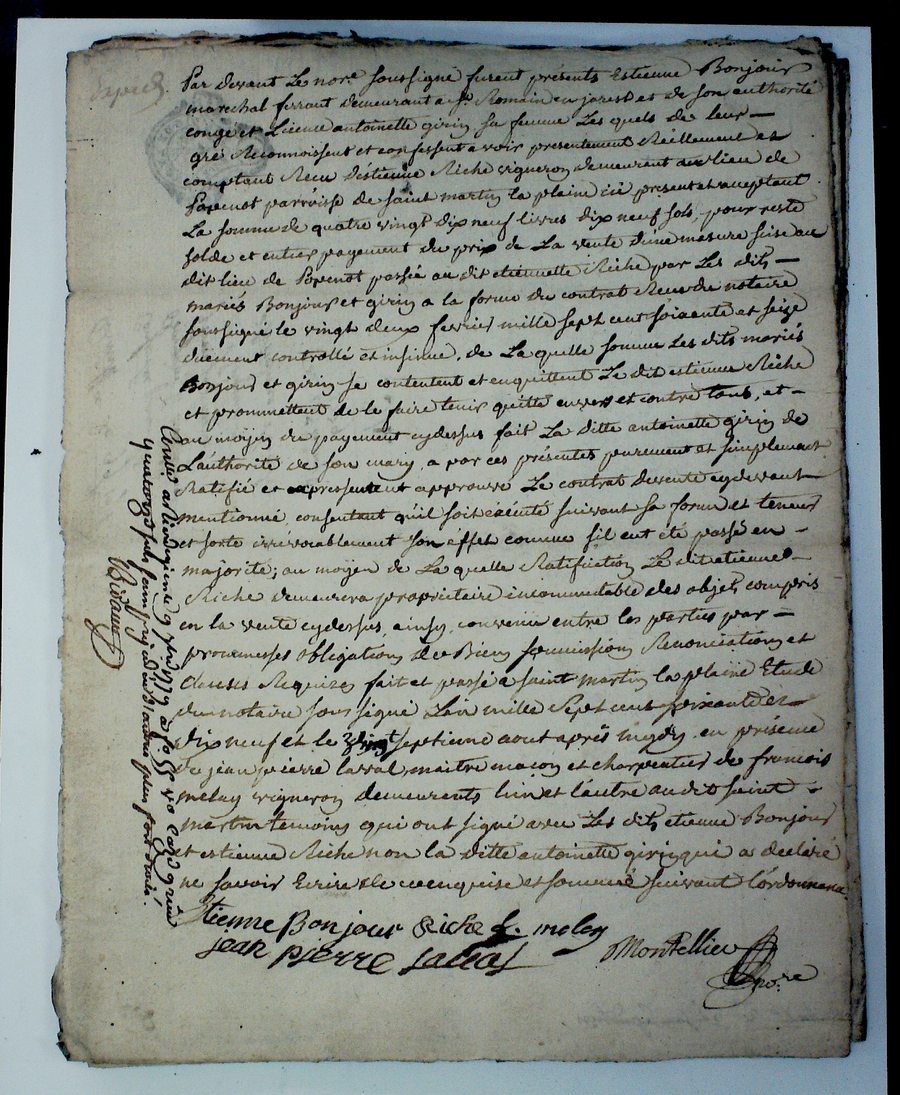 Par devant Le nore soussigné furent présents Estienne Bonjour
marechal ferrant demeurant a st. Romain en jarest et de son authorité
congé et Licence antoinette girin sa femme Les quels de leur
gré Reconnoissent et confessent avoir presentement Réellement et
comptant Recu d'estienne Riche vigneron demeurant au lieu de
parroisse de saint martin la plaine ici present et acceptant
La somme de quatre vingt dix neuf livres dix neuf sols, pour reste
solde et entier payement du prix de La vente d'une masure scise au
dit lieu de passée au dit etiennette Riche par Les dits
mariés Bonjour et girin a la forme du contrat Recu du notaire
soussigné le vingt deux fevrier mille sept cent soixante et seize
duement controllé et insinué, de La quelle somme Les dits mariés
Bonjour et girin se contentent et en quittent Le dit estienne Riche
et prommettent de le faire tenir quitte envers et contre tous, et
au moyen du payement cydessus fait La ditte antoinette girin de
L'authorité de son mary, a par ces présentes purement et simplement
Ratifié et approuvé Le contrat de vente cydevant
mentionné, consentant qu'il soit executé suivant sa forme et teneur
et sorte irrévocablement son effet comme s'il eut été passé en
majorité; au moyen de La quelle Ratifiction Le dit etienne
Riche demeurera propriétaire incommutable des objets compris
en la vente cydessus, ainsy convenu entre les parties par
prommesses obligations de Biens soumissions Renonciations et
clauses Requises fait et passé a saint martin la plaine Etude
du notaire soussigné L'an mille Sept cent soixante et
dix neuf et le vingt septieme aout après midy en présence
de jean pierre laval maitre macon et charpentier de francois
melay vigneron demeurents l'un et l'autre au dit saint
martin temoins qui ont signé avec Les dits etienne Bonjour
et estienne Riche non la ditte antoinette girin qui a déclaré
ne savoir Ecrire de ce enquise et sommée suivant l'ordonnance
Etienne Bonjour Riche f. melay
jean pierre laval Montellier
nore
quatorze sols